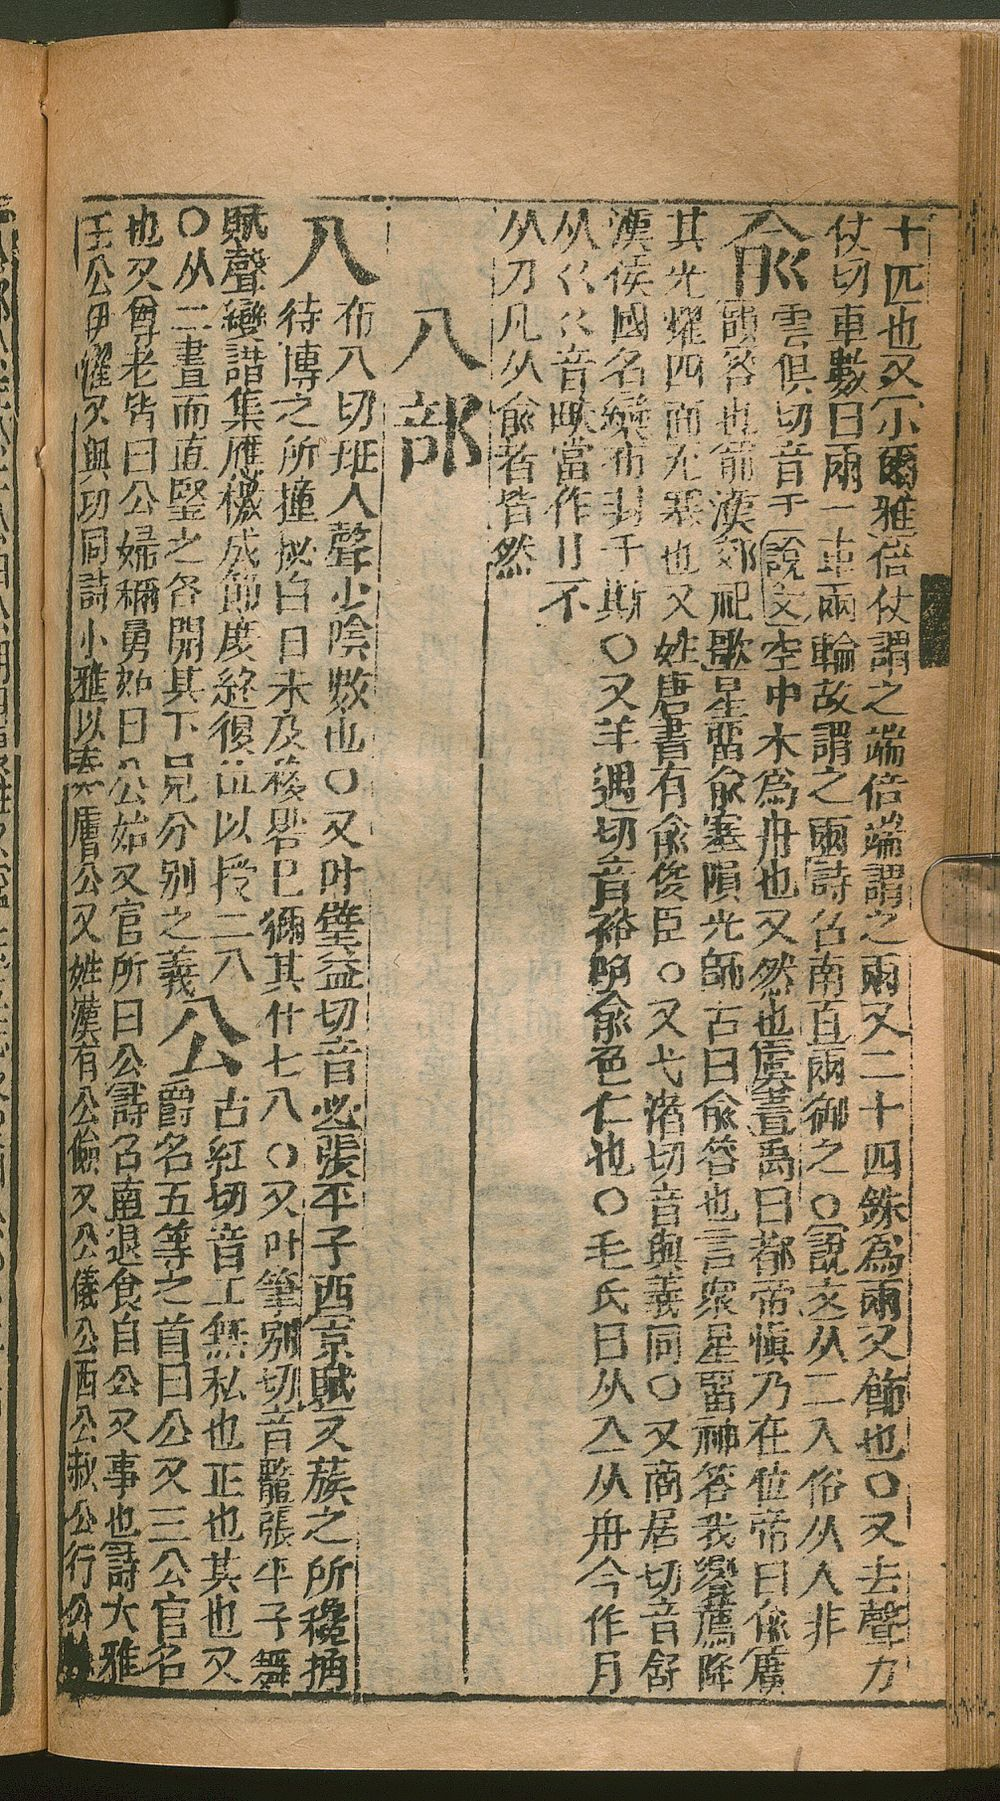 十匹也又小爾雅倍仗謂之端倍端謂之兩又二十四銖爲兩又飾也〇又去聲力
仗切車數曰兩一車兩輪故謂之兩詩召南百兩御之〇說文从二入俗从人非
兪
雲俱切音于說文空中木爲舟也又然也虞書禹曰都帝愼乃在位帝曰兪廣
韻答也前漢郊祀歌星畱兪塞隕光師古曰兪答也言衆星畱神答我饗薦降
其光燿四面充塞也又姓唐書有兪俊臣〇又弋渚切音與義同〇又商居切音舒
漢侯國名欒布封于斯〇又羊遇切音裕 兪色仁也〇毛氏曰从亼从舟今作月
从巜巜音畎當作刂不
从刀凡从兪者皆然
八部
八
布八切班入聲少陰數也〇又叶璧益切音必張平子西京賦又蔟之所攙捔
待博之所撞㧙白日未及移晷已獮其什七八〇又叶筆別切音鼈張平子舞
賦聲變諧集應檄成節度終復位以授二八
公
古紅切音工無私也正也共也又
〇从二畫而直竪之各開其下 分别之義
爵名五等之首曰公又三公官名
也又尊老皆曰公婦稱舅姑曰公姑又官所曰公詩召南退食自公又事也詩大雅
王公伊濯又與功同詩小雅以奏膚公又姓漢有公儉又公儀公西公叔公行公